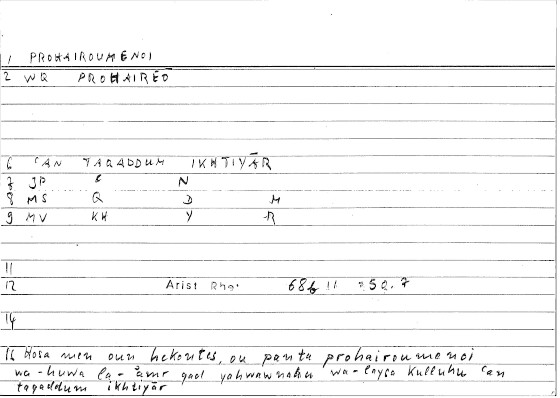 1 PROHAIROUMENOI
2 WQ PROHAIREŌ
6 ʿAN TAQADDUM IKHTIYĀR
7 JP ʿ N
8 MS Q D M
9 MV KH Y R
11
12 Arist Rhet 68b 11 = 50.7
14
15 Hosa men oun hekontes, ou panta prohairoumenoi
wa-huwa qad yahwawnahu wa-laysa kulluhu ʿan
taqaddum ikhtiyār